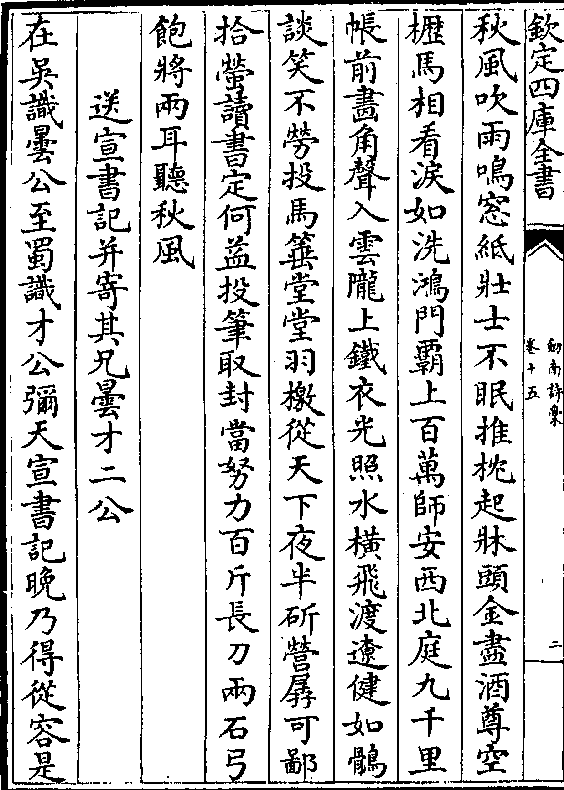 欽定四庫全書
劒南詩稾
卷十五
二
秋風吹雨鳴窓紙壯士不眠推枕起牀頭金盡酒尊空
櫪馬相看淚如洗鴻門霸上百萬師安西北庭九千里
帳前畫角聲入雲隴上鐵衣光照水橫飛渡遼健如鶻
談笑不勞投馬箠堂堂羽檄從天下夜半斫營孱可鄙
拾螢讀書定何益投筆取封當努力百斤長刀兩石弓
飽將兩耳聽秋風
送宣書記并寄其兄曇才二公
在吳識曇公至蜀識才公彌天宣書記晚乃得從容是